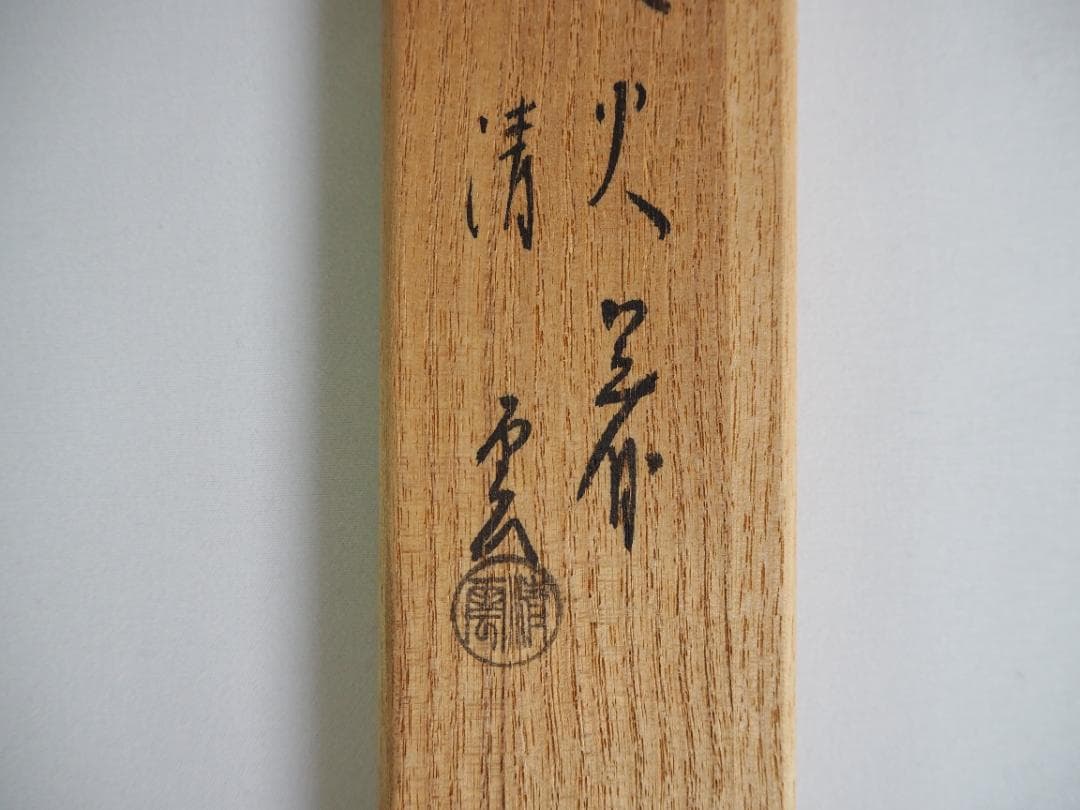 火箸
清雲
清雲